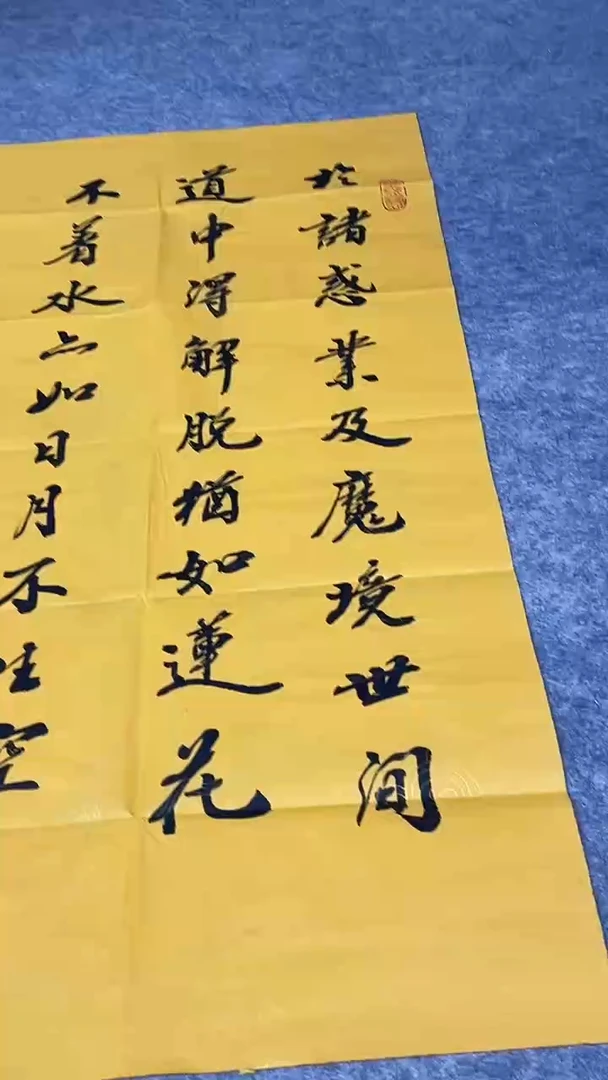 於諸惑業及魔境世間
道中得解脱猶如蓮花
不着水亦如日月不住空